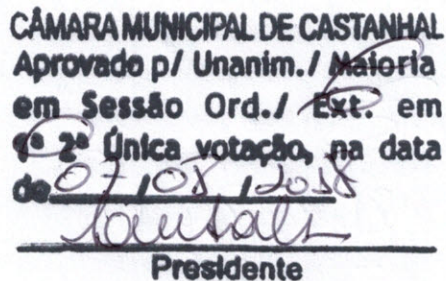 CÂMARA MUNICIPAL DE CASTANHAL
Aprovado p/ Unanim./ Maioria
em Sessão Ord./ Ext. em
1ª 2ª Única votação, na data
de 07 / 08 / 2018
Presidente